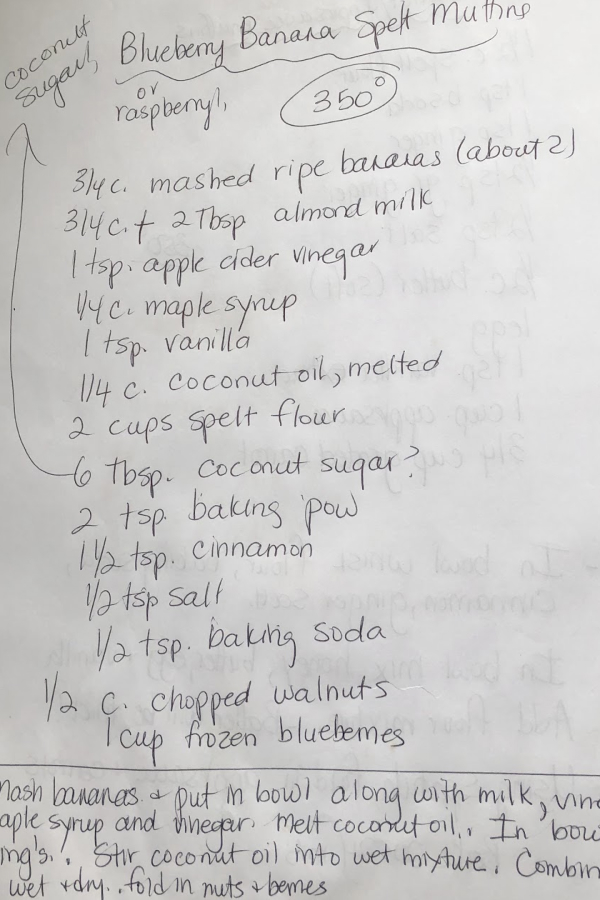 coconut
sugar!
Blueberry Banana Spelt Muffins
or
raspberry!,
350°
3/4 c. mashed ripe bananas (about 2)
3/4 c. + 2 Tbsp almond milk
1 tsp. apple cider vinegar
1/4 c. maple syrup
1 tsp. vanilla
1/4 c. coconut oil, melted
2 cups spelt flour
6 tbsp. coconut sugar?
2 tsp. baking pow
1 1/2 tsp. cinnamon
1/2 tsp salt
1/2 tsp. baking soda
1/2 c. chopped walnuts
1 cup frozen blueberries
mash bananas + put in bowl along with milk, vin
aple syrup and vinegar. Melt coconut oil. In bow
ing's. Stir coconut oil into wet mixture. Combin
wet + dry. fold in nuts + berries